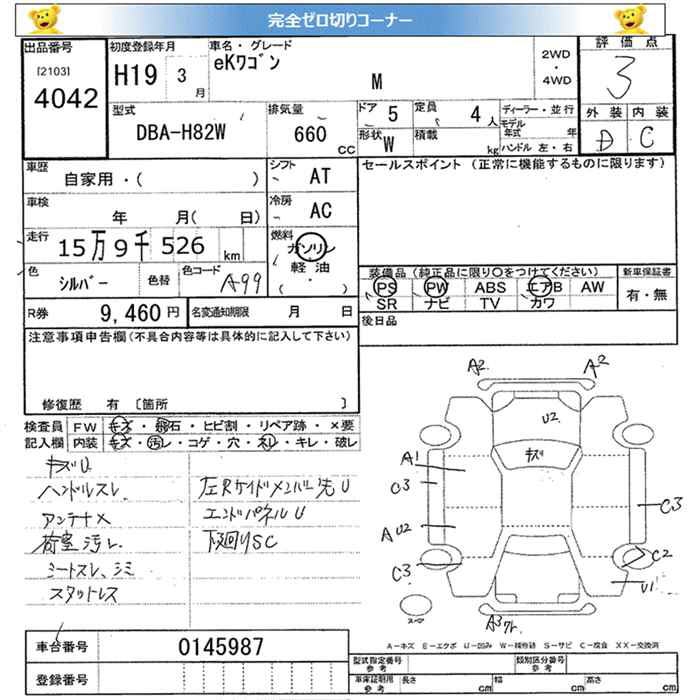 完全ゼロ切りコーナー
出品番号
[2103]
4042
初度登録年月
H19 3 月
車名・グレード
eKワゴン
M
2WD
・
4WD
評価点
3
外装 内装
D C
型式
DBA-H82W
排気量
660 CC
ドア 5
定員 4 人
形状 W
積載 kg
ディーラー・並行
モデル
年式 年
ハンドル 左・右
車歴
自家用・( )
シフト
AT
セールスポイント (正常に機能するものに限ります)
車検
年 月( 日)
冷房
AC
走行
15万9千526 km
燃料
ガソリン
軽油
( )
色
シルバー
色替
色コード
A99
装備品 (純正品に限り○をつけてください)
PS PW ABS エアB AW
SR ナビ TV カワ
新車保証書
有・無
R券
9,460 円
名変通知期限 月 日
後日品
注意事項申告欄(不具合内容等は具体的に記入して下さい)
修復歴 有 〔箇所 〕
検査員
記入欄
FW キズ・飛石・ヒビ割・リペア跡・×要
内装 キズ・汚レ・コゲ・穴・スレ・キレ・破レ
キズU
ハンドルスレ
アンテナ×
荷室汚レ
シートスレ、シミ
スタットレス
左Rサイドメンバー先U
エンドパネルU
下廻りSC
A2 A2
U2
キズ
A1
C3
C3
A U2
C3
C2
U1
A3ワレ
スペア
A=キズ E=エクボ U=凹み W=補修跡 S=サビ C=腐食 XX=交換済
車台番号
0145987
登録番号
型式指定番号
参考
類別区分番号
参考
車庫証明用
参考
長さ cm
幅 cm
高さ cm